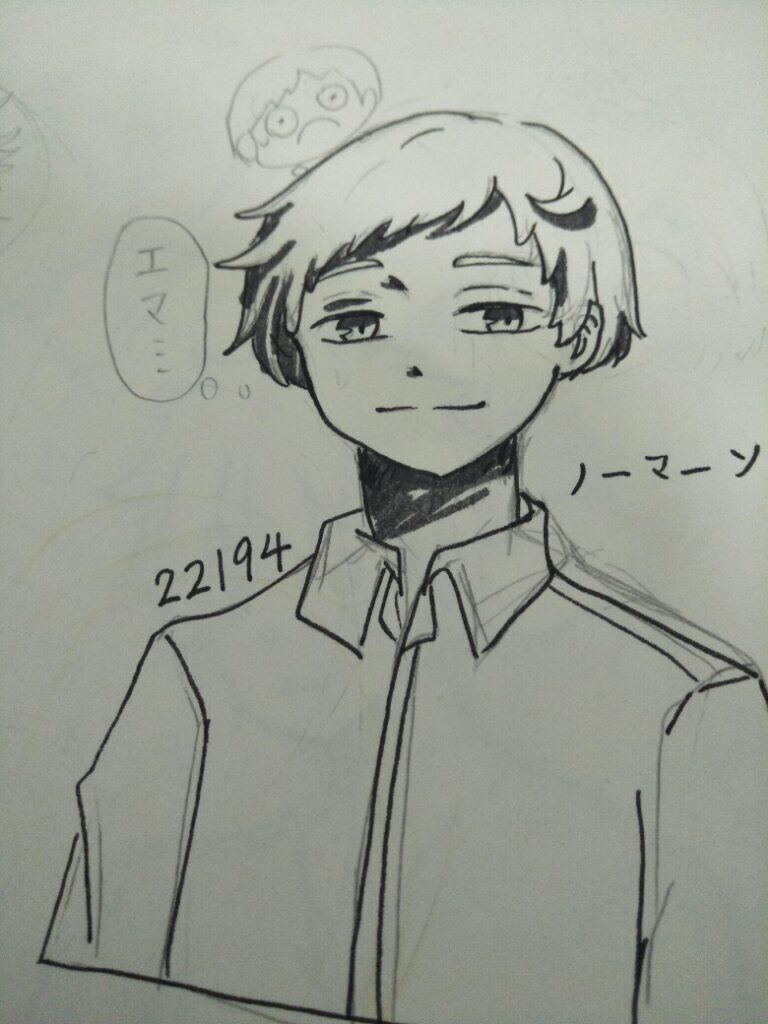 エマ…
ノーマーン
22194